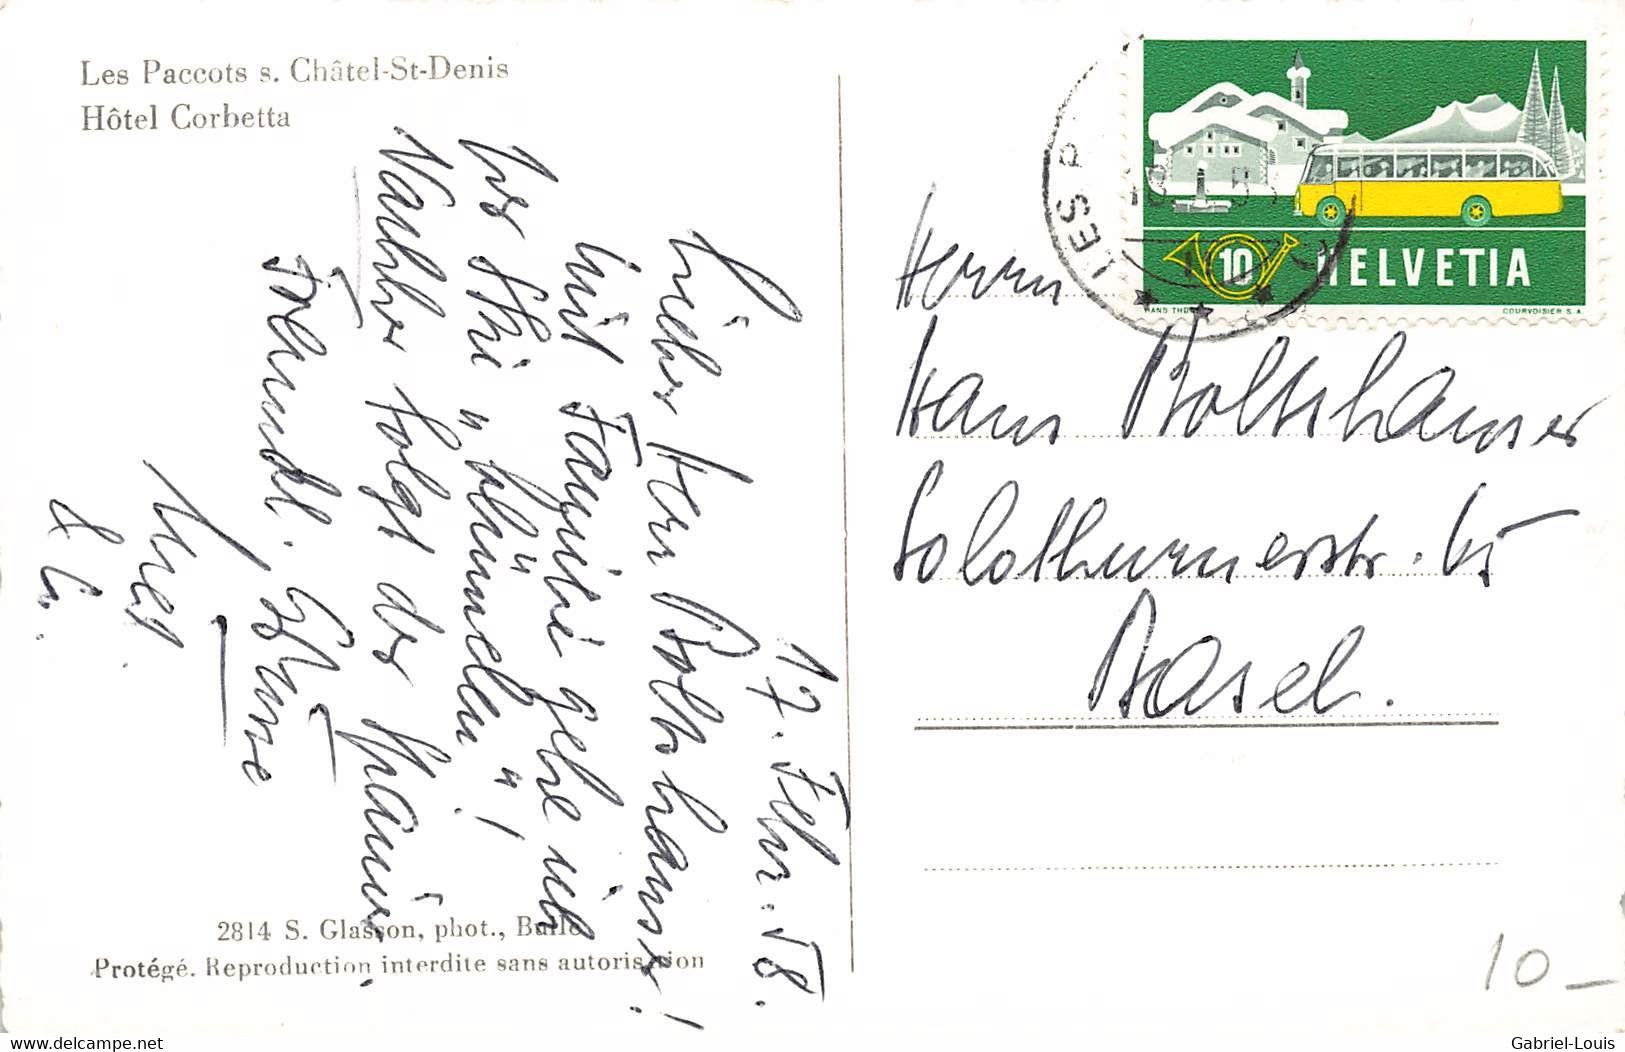 Les Paccots s. Châtel-St-Denis
Hôtel Corbetta
17. Febr. 58.
Lieber Herr Boltshauser!
Mit Familie gehe ich
ins Ski "
Nachher folgt der
Freundl. Grüsse
Ihres
2814 S. Glasson, phot., Bulle
Protégé. Reproduction interdite sans autorisation
LES P
10 HELVETIA
COURVOISIER S.A.
Herrn
Hans Boltshauser
Solothurnerstr. 65
Basel.
10 —
delcampe.net
Gabriel-Louis